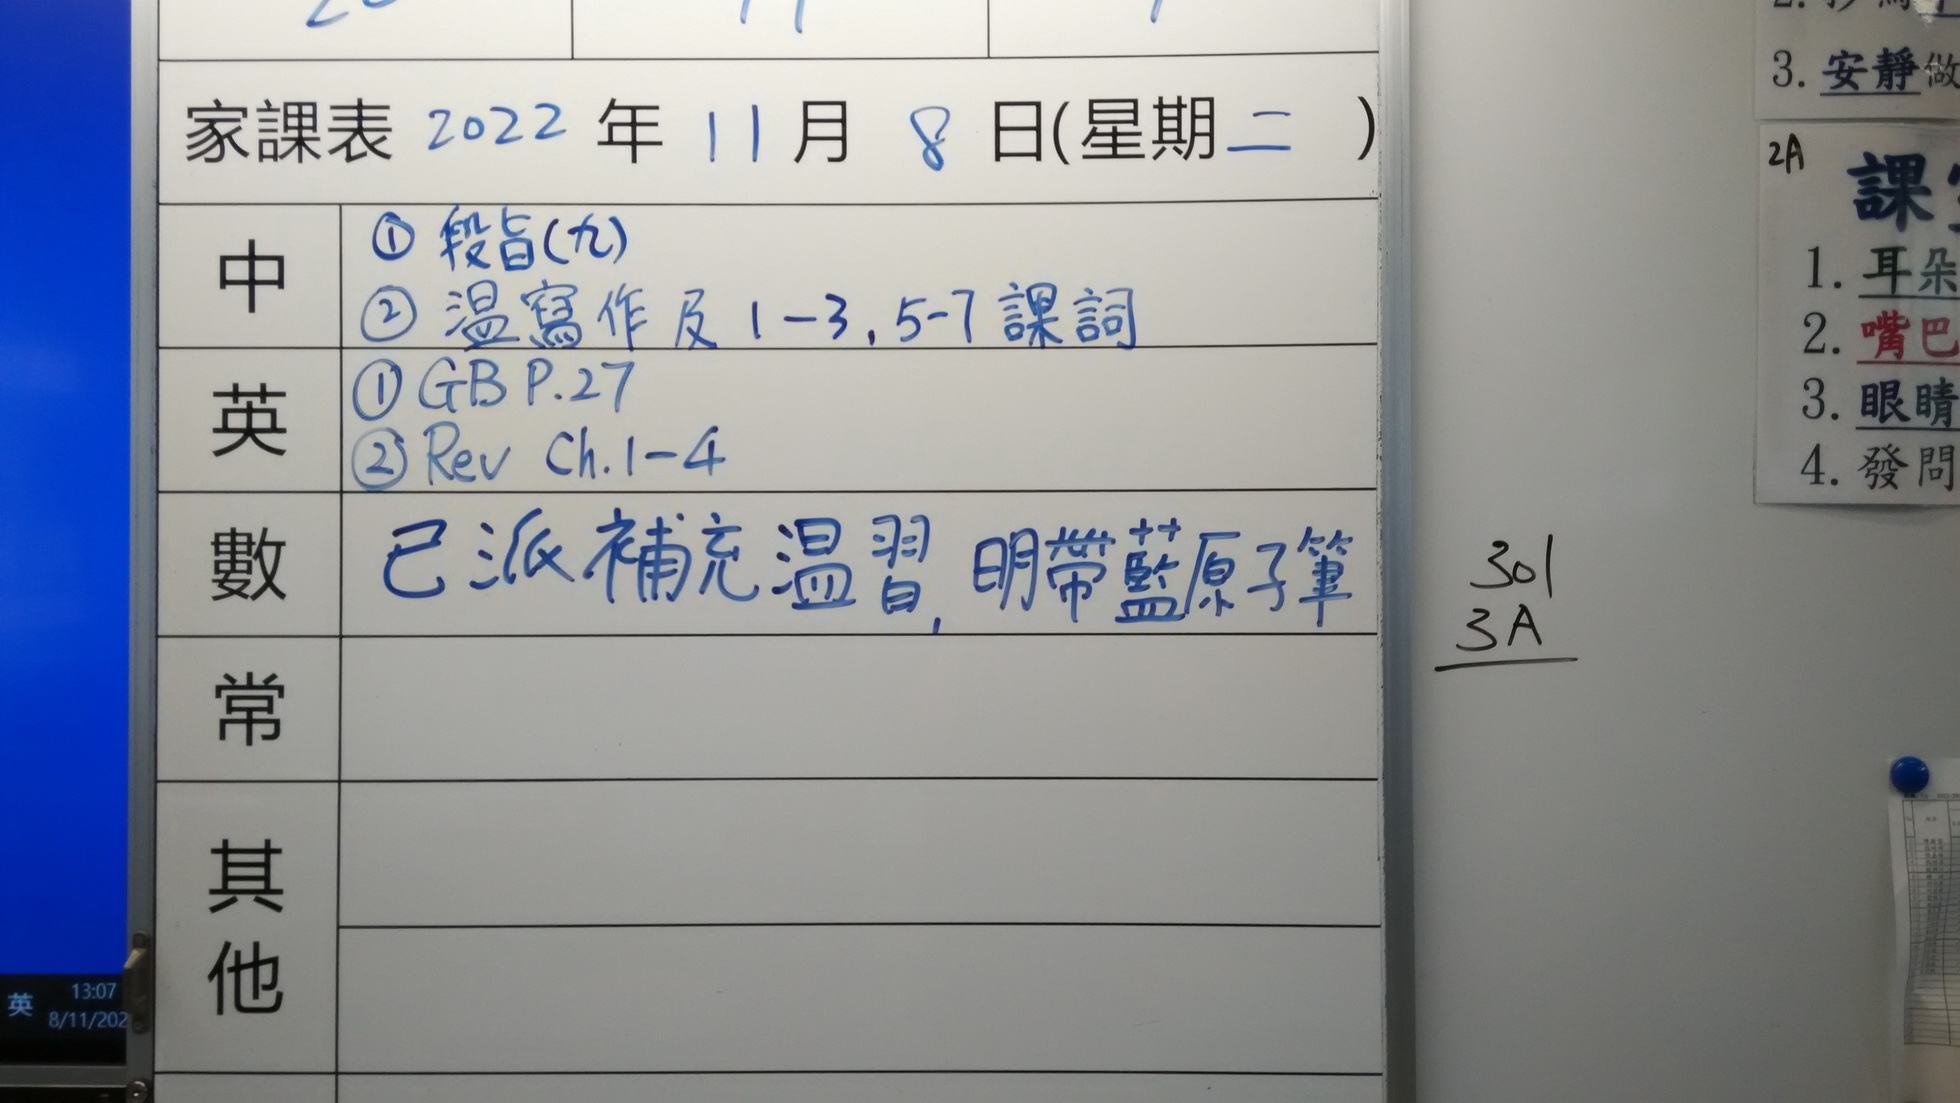 家課表 2022 年 11 月 8 日(星期二 )
中
① 段旨(九)
② 温寫作及 1-3, 5-7 課詞
英
① GB P.27
② Rev Ch.1-4
數
已派補充温習, 明帶藍原子筆
常
其他
301
3A
3. 安靜做
2A
課
1. 耳朵
2. 嘴巴
3. 眼睛
4. 發問
英
13:07
8/11/202